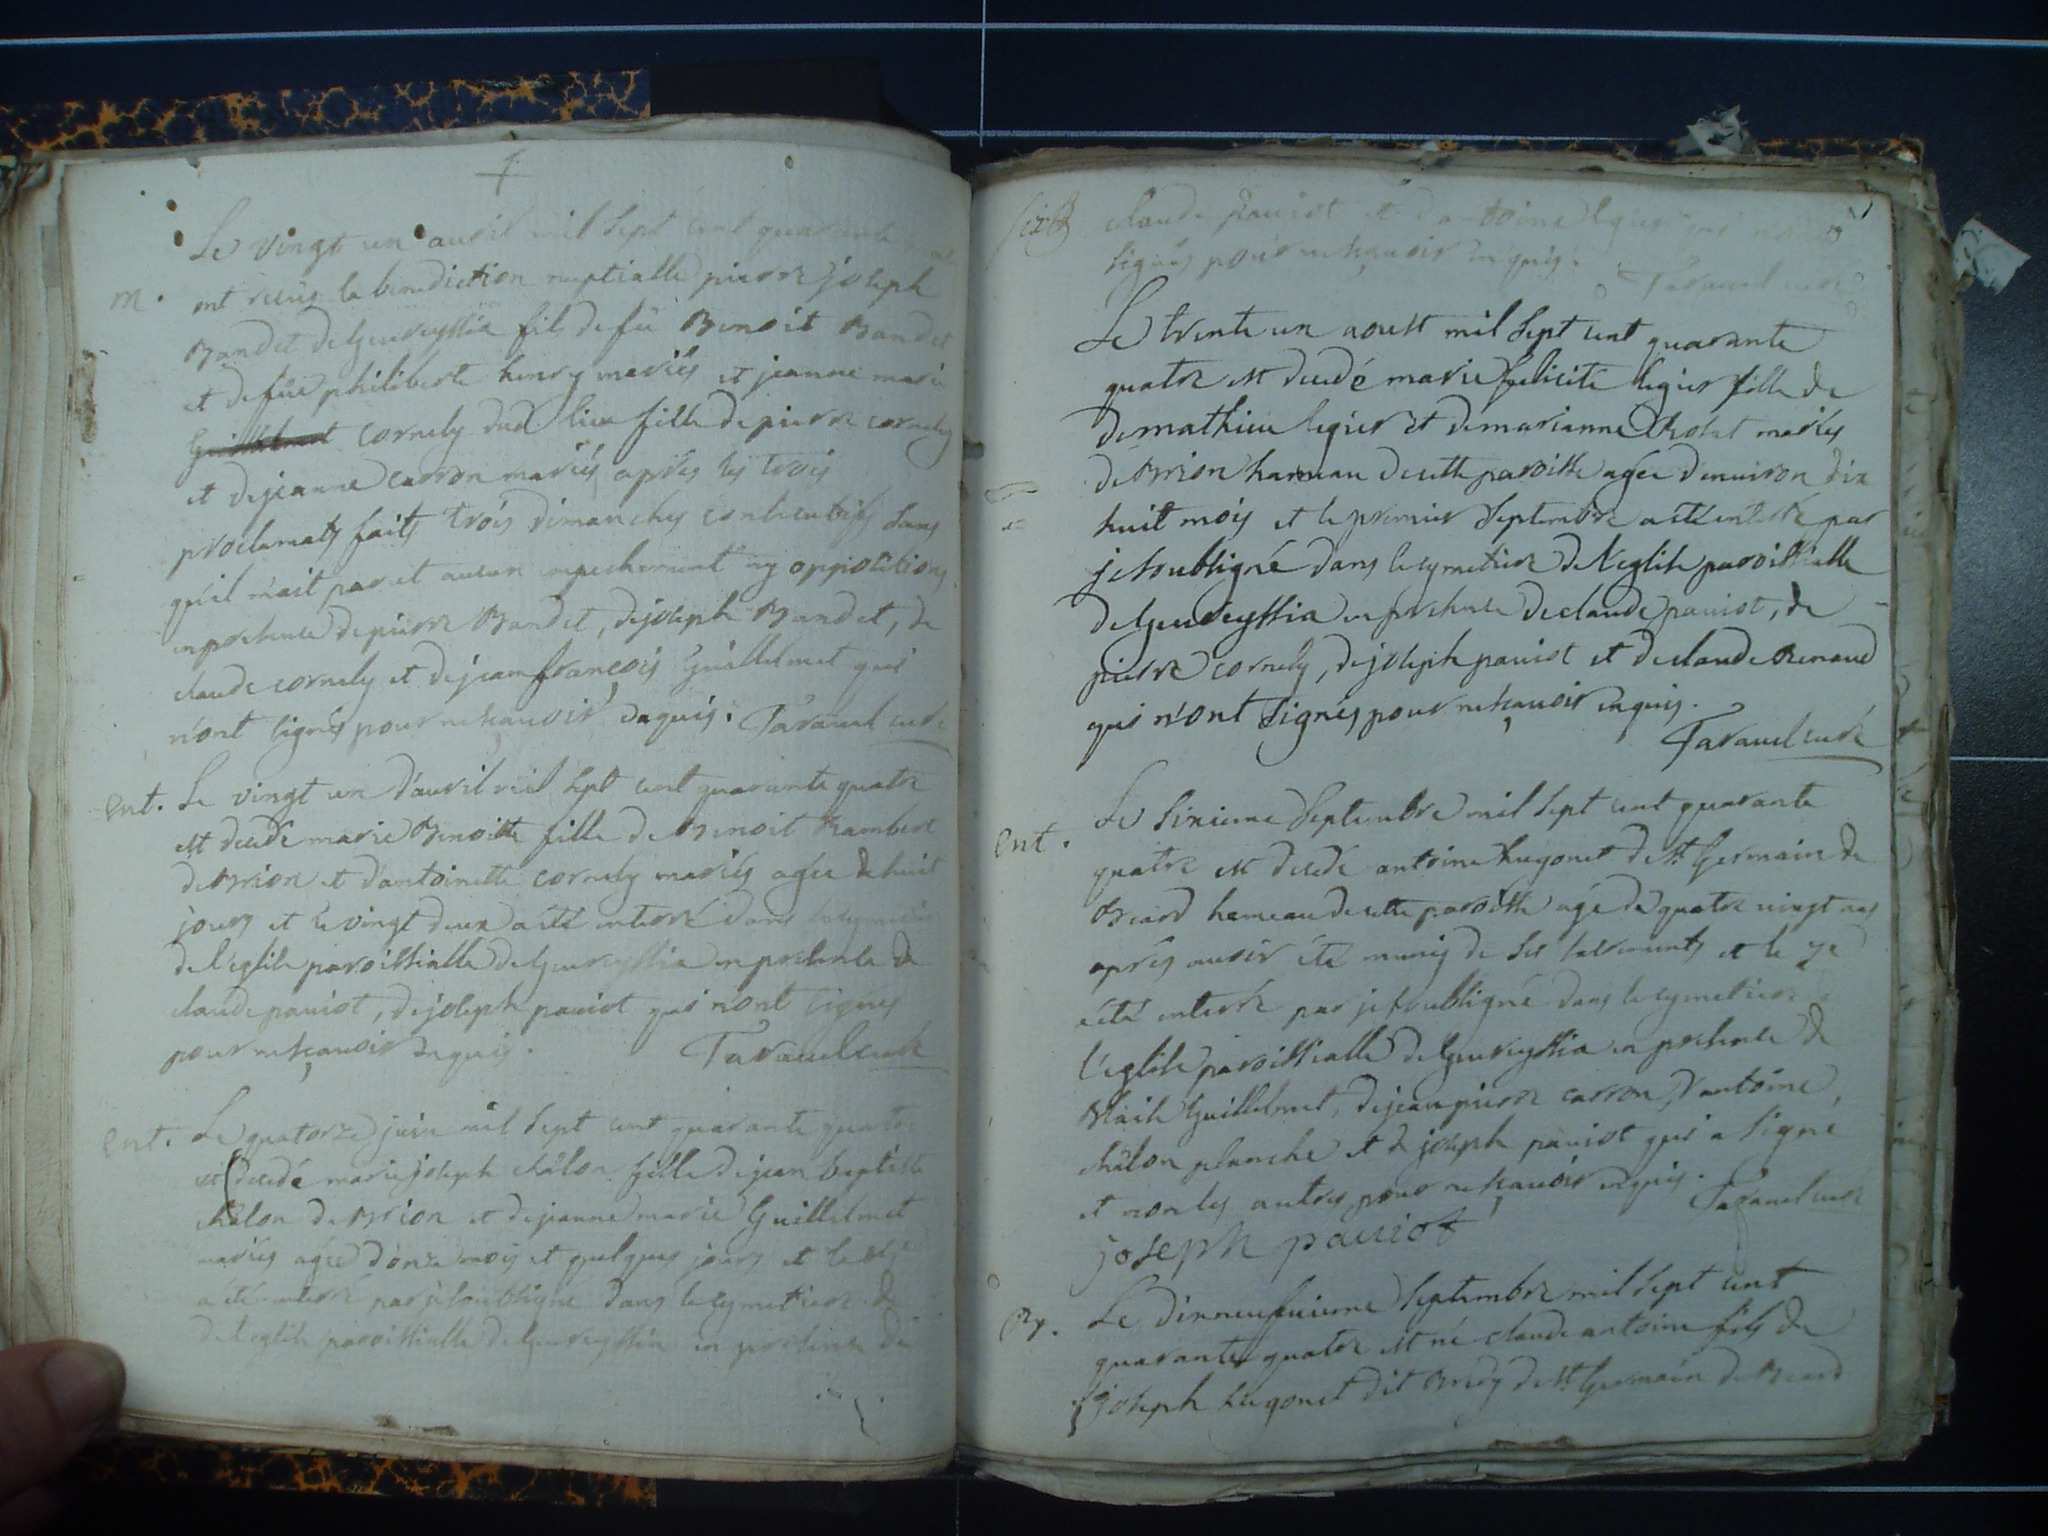 Le vingt un avril mil sept cent quarante
m. ont reçûs la benediction nuptialle pierre joseph
Bandet de Geuvreyssia fils de fû Benoit Bandet
et de fûe philiberte henry mariés et jeanne marie
cornely dud. lieu fille de pierre cornely
et de jeanne carron mariés après les trois
proclamats faits trois dimanches consecutifs sans
qu'il n'ait paru et aucun empechement ny oppositions
en presence de pierre Bandet, de joseph Bandet, de
claude cornely et de jean françois Guillelmet qui
n'ont signés pour ne sçavoir enquis. Taravel curé
Ent. Le vingt un d'avril mil sept cent quarante quatre
est decedé marie Benoitte fille de Benoit Rambert
de Brion et d'antoinette cornely mariés agée de huit
jours et le vingt deux a été enterré dans le cymetiere
de l'eglise paroissialle de Geuvreyssia en presence de
claude paviot, de joseph paviot qui n'ont signés
pour ne sçavoir enquis. Taravel curé
Ent. Le quatorze juin mil sept cent quarante quatre
est decedé marie joseph châlon fille de jean baptiste
châlon de Brion et de jeanne marie Guillelmet
mariés agée d'onze mois et quelques jours et le
a été enterré par je soubsigné dans le cymetiere de
de l'eglise paroissialle de Geuvreyssia en presence de
six claude paviot et d'antoine qui n'ont
signés pour ne sçavoir enquis.
Taravel curé
Le trente un aoust mil sept cent quarante
quatre est decedé marie felicité legier fille de
de mathieu legier et de marianne mariés
de Brion hameau de cette paroisse agée d'environ dix
huit mois et le premier septembre a été enterré par
je soubsigné dans le cymetiere de l'eglise paroissialle
de Geuvreyssia en presence de claude paviot, de
pierre cornely, de joseph paviot et de claude Renaud
qui n'ont signés pour ne sçavoir enquis.
Taravel curé
Ent. Le sixieme septembre mil sept cent quarante
quatre est decedé antoine hugonet de St Germain de
Beard hameau de cette paroisse agé de quatre vingt ans
après avoir été muny de ses sacrements et le 7e
a été enterré par je soubsigné dans le cymetiere
l'eglise paroissialle de Geuvreyssia en presence de
Blaise Guillelmet, de jean pierre carron, d'antoine
châlon planche et de joseph paviot qui a signé
et non les autres pour ne sçavoir enquis. Taravel curé
joseph paviot
By. Le dixneufvieme septembre mil sept cent
quarante quatre est né claude antoine fils de
joseph hugonet dit de St Germain de Beard